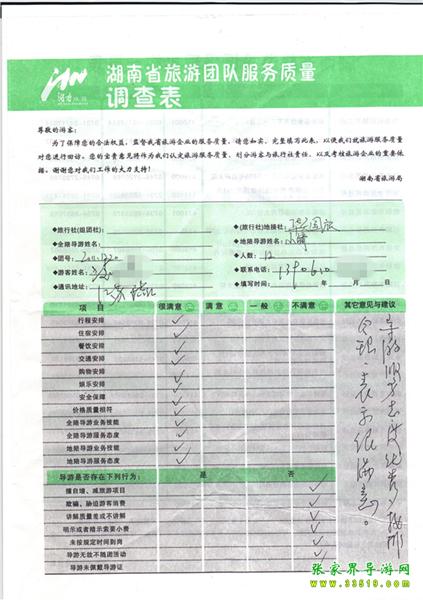 湖南省旅游团队服务质量
调查表
尊敬的游客:
为了保障您的合法权益,监督我省旅游企业的服务质量,请您如实、完整填写此表,以便我们就旅游服务质量
对您进行回访。您的宝贵意见将作为我们认定旅游服务质量、划分游客与旅行社责任、以及考核旅游企业的重要依
据。谢谢您对我们工作的大力支持!
湖南省旅游局
◆旅行社(组团社):
◆(旅行社)地接社:
◆全陪导游姓名:
◆地陪导游姓名:
◆团号:
◆人数:12
◆游客姓名:
◆联系电话:
◆通讯地址:
◆填写时间: 年 月 日
项 目 很满意 满 意 一 般 不满意 其它意见与建议
行程安排 ✓
住宿安排 ✓
餐饮安排 ✓
交通安排 ✓
购物安排 ✓
娱乐安排 ✓
安全保障 ✓
价格质量相符 ✓
全陪导游业务技能 ✓
全陪导游服务态度 ✓
地陪导游业务技能 ✓
地陪导游服务态度 ✓
导游是否存在下列行为: 是 否
擅自增、减旅游项目 ✓
欺骗、胁迫游客消费 ✓
讲解质量差或不讲解 ✓
明示或者暗示索要小费 ✓
未按规定时间到岗 ✓
导游无故不随团活动 ✓
导游未佩戴导游证 ✓
合理,表示很满意。
张家界导游网
www.33519.com